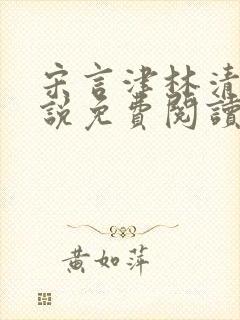 宋言津林清
說免費閱讀
黃如萍